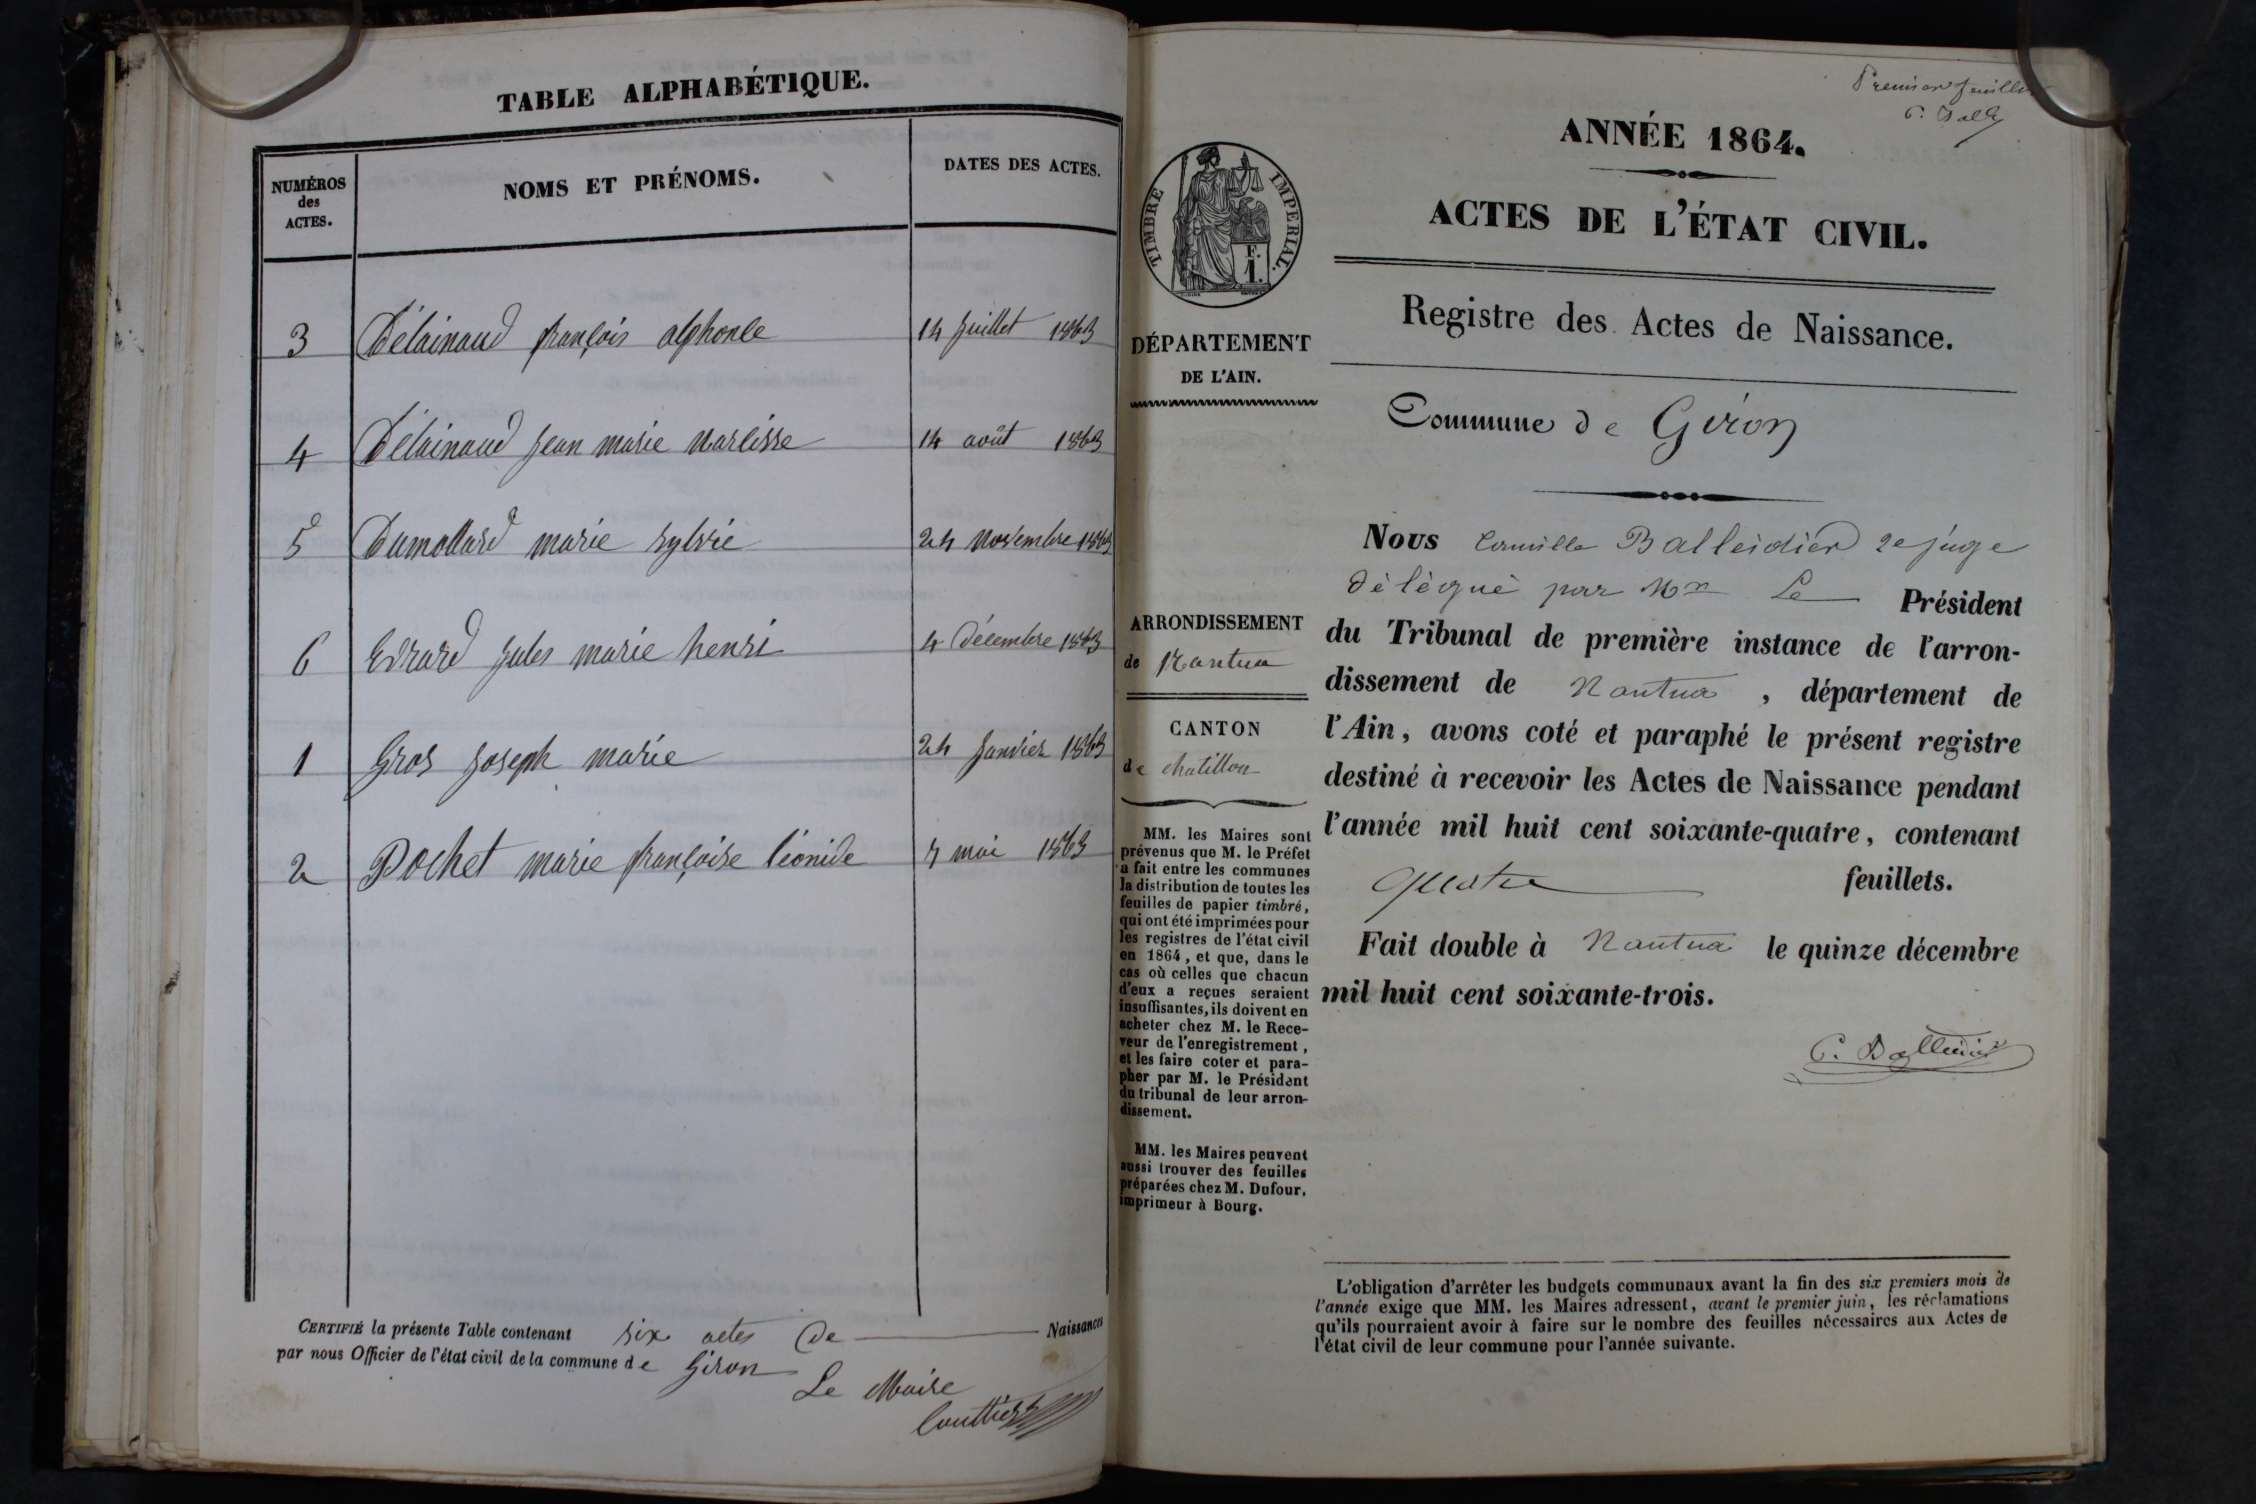 TABLE ALPHABÉTIQUE.
NUMÉROS des ACTES. NOMS ET PRÉNOMS. DATES DES ACTES.
3 Délainaud françois alphonse 14 juillet 1863
4 Délainaud jean marie narlisse 14 août 1863
5 Dumollard marie sylvie 24 novembre 1863
6 Edrard jules marie henri 4 décembre 1863
1 Gros joseph marie 24 janvier 1863
2 Pochet marie françoise léonide mai 1863
CERTIFIÉ la présente Table contenant six actes de Naissances
par nous Officier de l'état civil de la commune de Giron
Le Maire
Premier feuillet
C. Ball
ANNÉE 1864.
ACTES DE L'ÉTAT CIVIL.
TIMBRE IMPERIAL.
F. 1.
Registre des Actes de Naissance.
DÉPARTEMENT
DE L'AIN.
Commune de Giron
ARRONDISSEMENT
de Nantua
CANTON
de chatillon
MM. les Maires sont
prévenus que M. le Préfet
a fait entre les communes
la distribution de toutes les
feuilles de papier timbré,
qui ont été imprimées pour
les registres de l'état civil
en 1864, et que, dans le
cas où celles que chacun
d'eux a reçues seraient
insuffisantes, ils doivent en
acheter chez M. le Rece-
veur de l'enregistrement,
et les faire coter et para-
pher par M. le Président
du tribunal de leur arron-
dissement.
MM. les Maires peuvent
aussi trouver des feuilles
préparées chez M. Dufour,
imprimeur à Bourg.
Nous Camille Balleidier 2e juge
délégué par Mr Le Président
du Tribunal de première instance de l'arron-
dissement de Nantua, département de
l'Ain, avons coté et paraphé le présent registre
destiné à recevoir les Actes de Naissance pendant
l'année mil huit cent soixante-quatre, contenant
quatre feuillets.
Fait double à Nantua le quinze décembre
mil huit cent soixante-trois.
C. Balleidier
L'obligation d'arrêter les budgets communaux avant la fin des six premiers mois de
l'année exige que MM. les Maires adressent, avant le premier juin, les réclamations
qu'ils pourraient avoir à faire sur le nombre des feuilles nécessaires aux Actes de
l'état civil de leur commune pour l'année suivante.